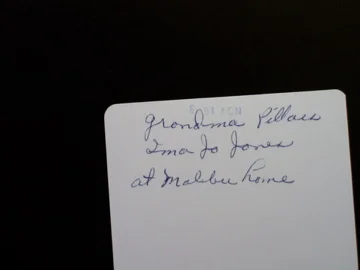 Grandma Pillars
Ima Jo Jones
at Malibu home